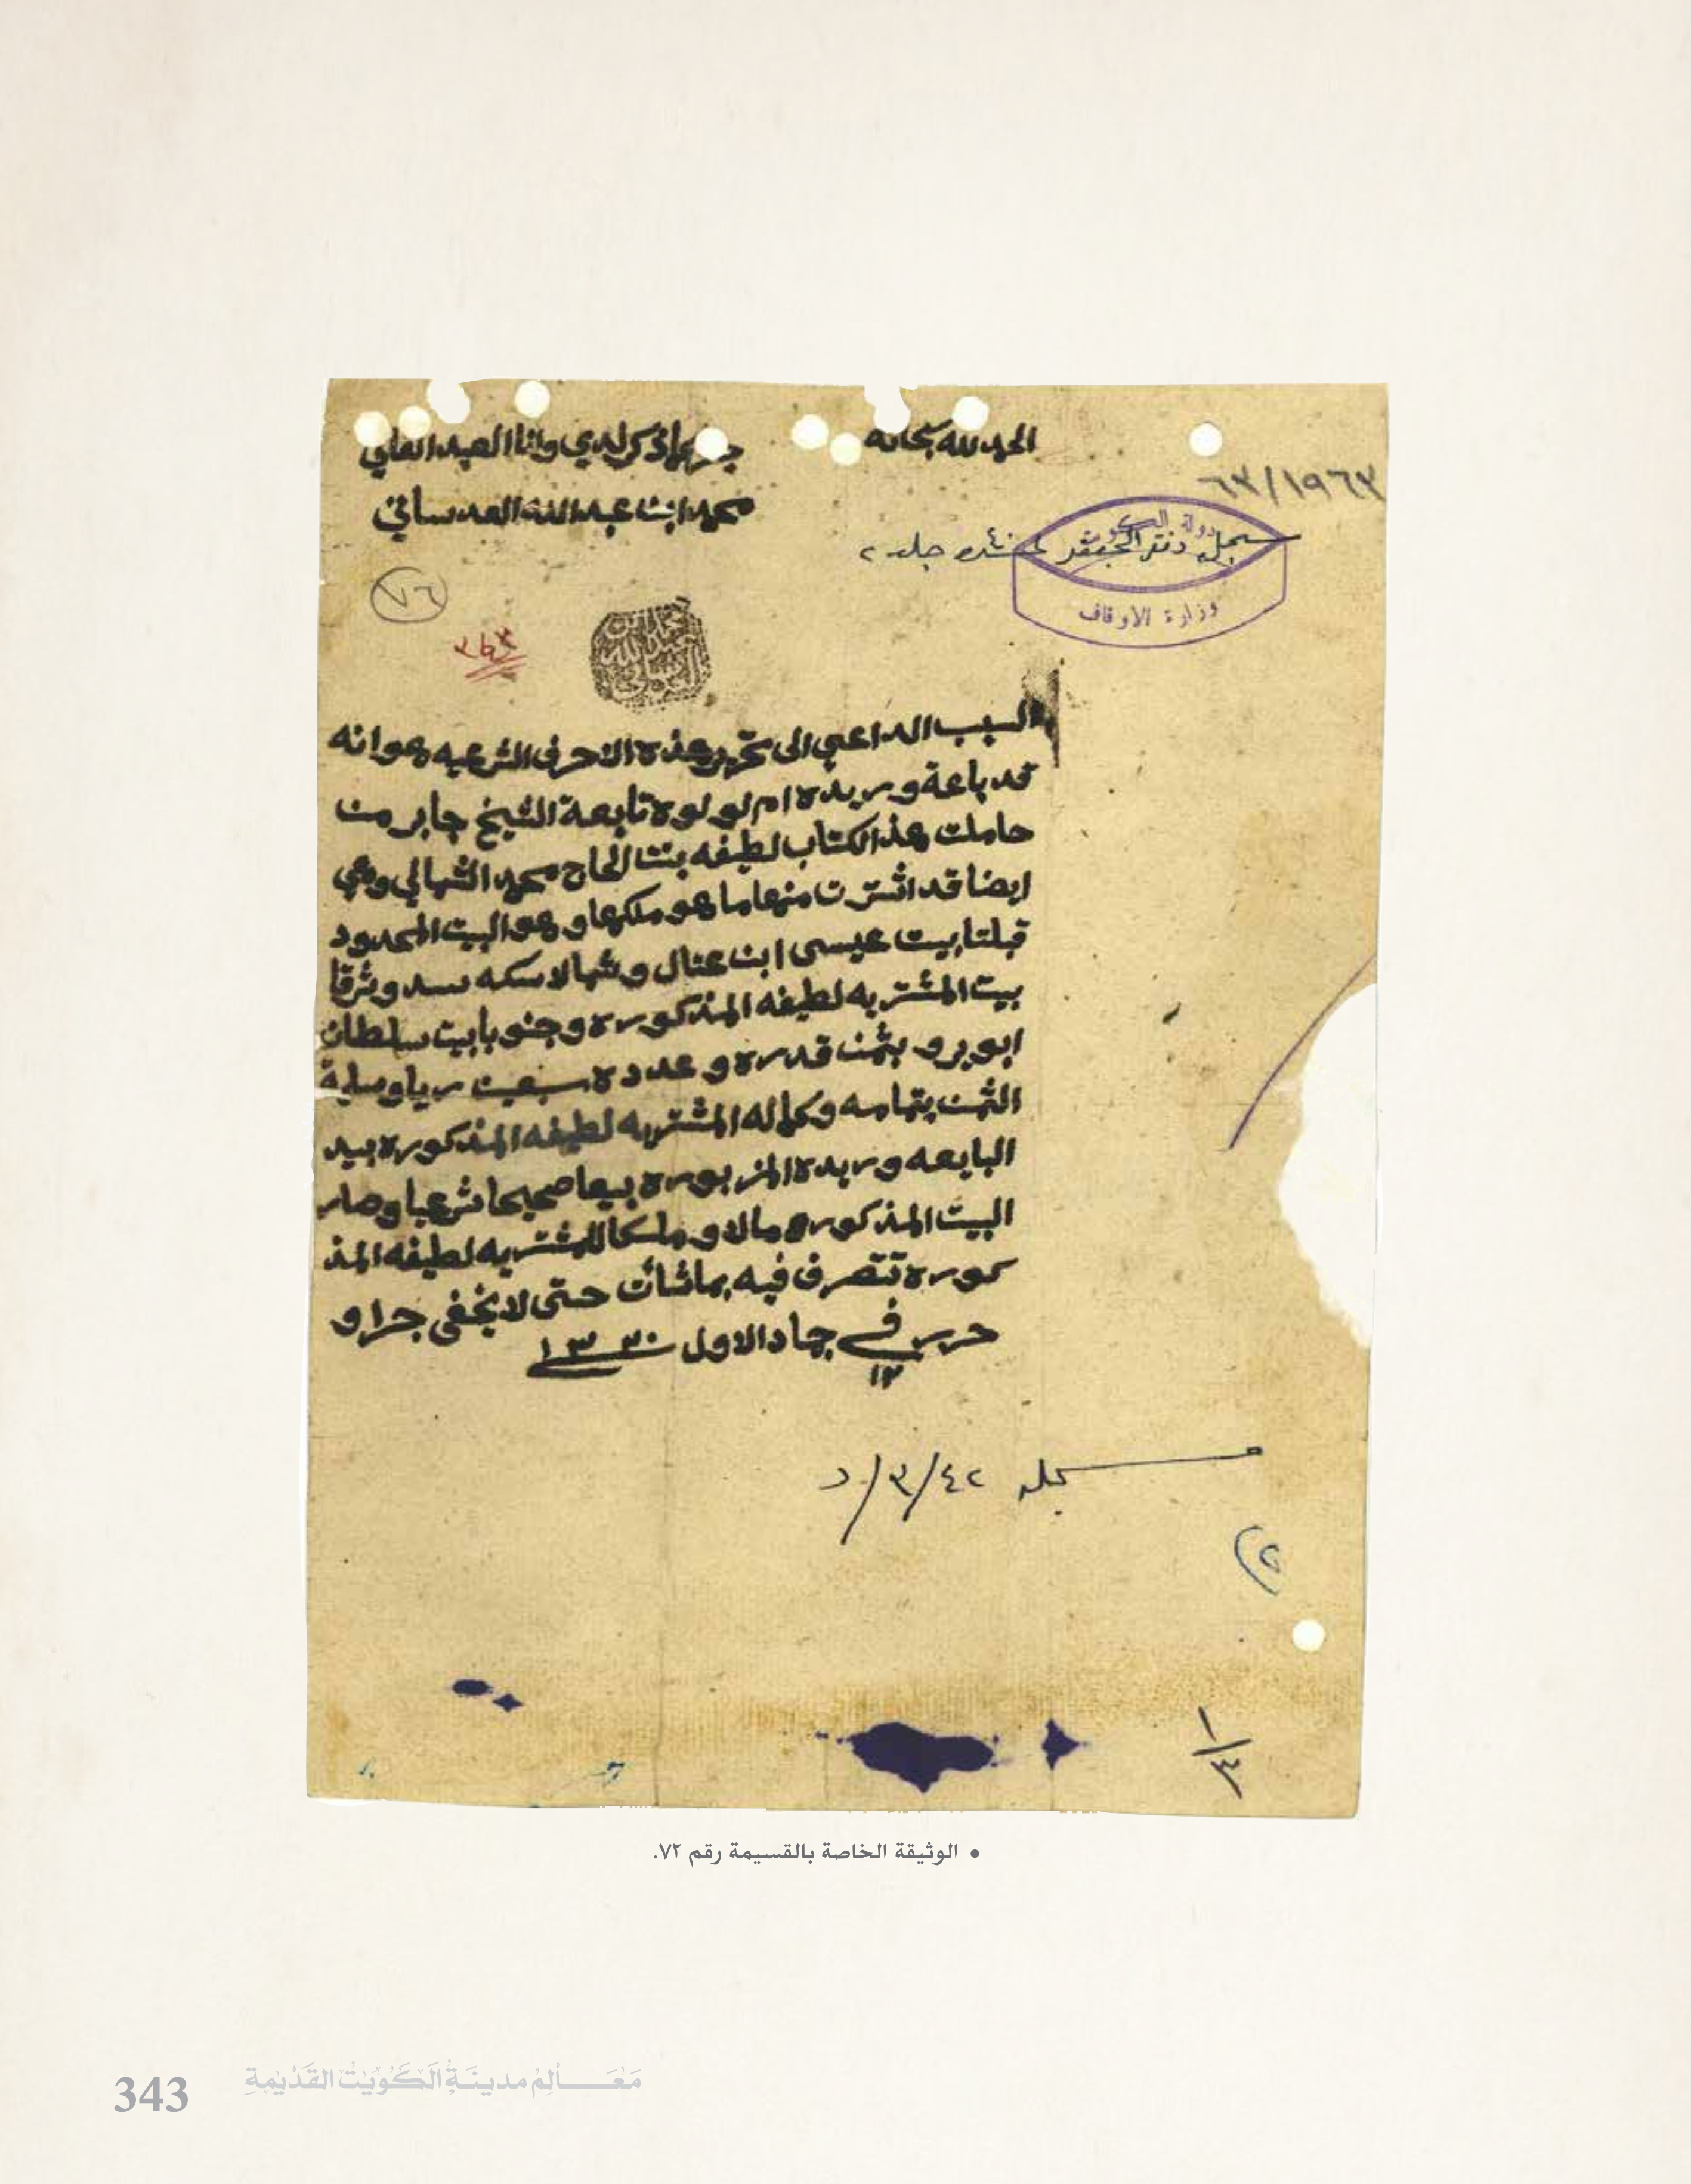 الحمد لله سبحانه
جرى ما ذكر لدي وانا العبد الفاني
محمد ابن عبد الله العدساني
٦٣/١٩٦٣
دولة الكويت
سجل دفتر جلد ٢
وزارة الاوقاف
٧٦
السبب الداعي الى تحرير هذه الاحرف الشرعيه هو انه
قد باعة وريده ام لولوه تابعة الشيخ جابر من
حاملت هذ الكتاب لطيفه بنت الحاج محمد الشمالي وهي
ايضا قد اشترت منها ما هو ملكها وهو البيت المحدود
قبلتا بيت عيسى ابن عنال وشمالا سكه سد وشرقا
بيت المشتريه لطيفه المذكوره وجنوبا بيت سلطان
ابويرو بثمن قدره وعدده سبعين ريا وصلة
الثمن بتمامه وكماله المشتريه لطيفه المذكوره بيد
البايعه وريده المزبوره بيعا صحيحا شرعيا وصار
البيت المذكوره مالا وملكا للمشتريه لطيفه المذ
كوره تتصرف فيه بما شأت حتى لا يخفى جرا و
حرر في جماد الاول ١٣٣٠
١٢
سجله ٤٢/٣/د
١/٤
• الوثيقة الخاصة بالقسيمة رقم ٧٢.
مَعَالِم مدينَةِ الكُوَيْت القَدِيمَةِ
343